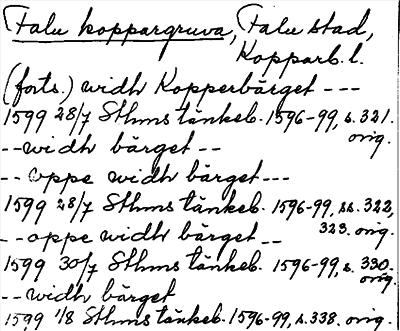 Falu koppargruva, Falu stad,
Kopparb. l.
(forts.) widh Kopperbärget ---
1599 28/7 Sthms tänkeb. 1596-99, s. 321.
orig.
-- widh bärget --
-- oppe widh bärget ---
1599 28/7 Sthms tänkeb. 1596-99, ss. 322,
323. orig.
-- oppe widh bärget --
1599 30/7 Sthms tänkeb. 1596-99, s. 330.
orig.
-- widh bärget
1599 1/8 Sthms tänkeb. 1596-99, s. 338, orig.